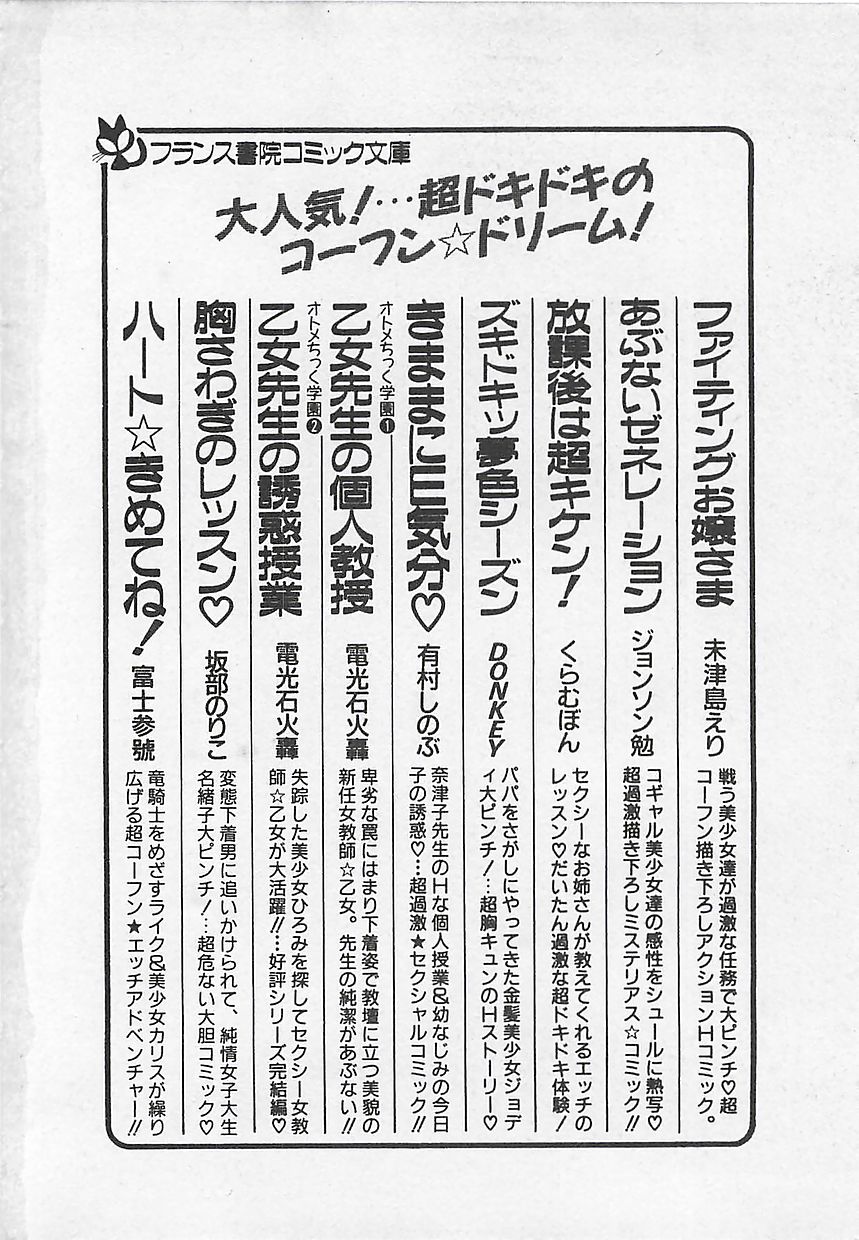 フランス書院コミック文庫
大人気!…超ドキドキの
コーフン☆ドリーム!
ファイティングお嬢さま
未津島えり
戦う美少女達が過激な任務で大ピンチ♡超
コーフン描き下ろしアクションHコミック。
あぶないゼネレーション
ジョンソン勉
コギャル美少女達の感性をシュールに熱写♡
超過激描き下ろしミステリアス☆コミック!!
放課後は超キケン!
くらむぼん
セクシーなお姉さんが教えてくれるエッチの
レッスン♡だいたん過激な超ドキドキ体験!
ズキドキッ夢色シーズン
DONKEY
パパをさがしにやってきた金髪美少女ジョデ
ィ大ピンチ!…超胸キュンのHストーリー♡
きままにH気分♡
有村しのぶ
奈津子先生のHな個人授業&幼なじみの今日
子の誘惑♡…超過激★セクシャルコミック!!
オトメちっく学園❶
乙女先生の個人教授
電光石火轟
卑劣な罠にはまり下着姿で教壇に立つ美貌の
新任女教師☆乙女。先生の純潔があぶない!!
オトメちっく学園❷
乙女先生の誘惑授業
電光石火轟
失踪した美少女ひろみを探してセクシー女教
師☆乙女が大活躍!!…好評シリーズ完結編♡
胸さわぎのレッスン♡
坂部のりこ
変態下着男に追いかけられて、純情女子大生
名緒子大ピンチ!…超危ない大胆コミック♡
ハート☆きめてね!
富士参號
竜騎士をめざすライク&美少女カリスが繰り
広げる超コーフン★エッチアドベンチャー!!